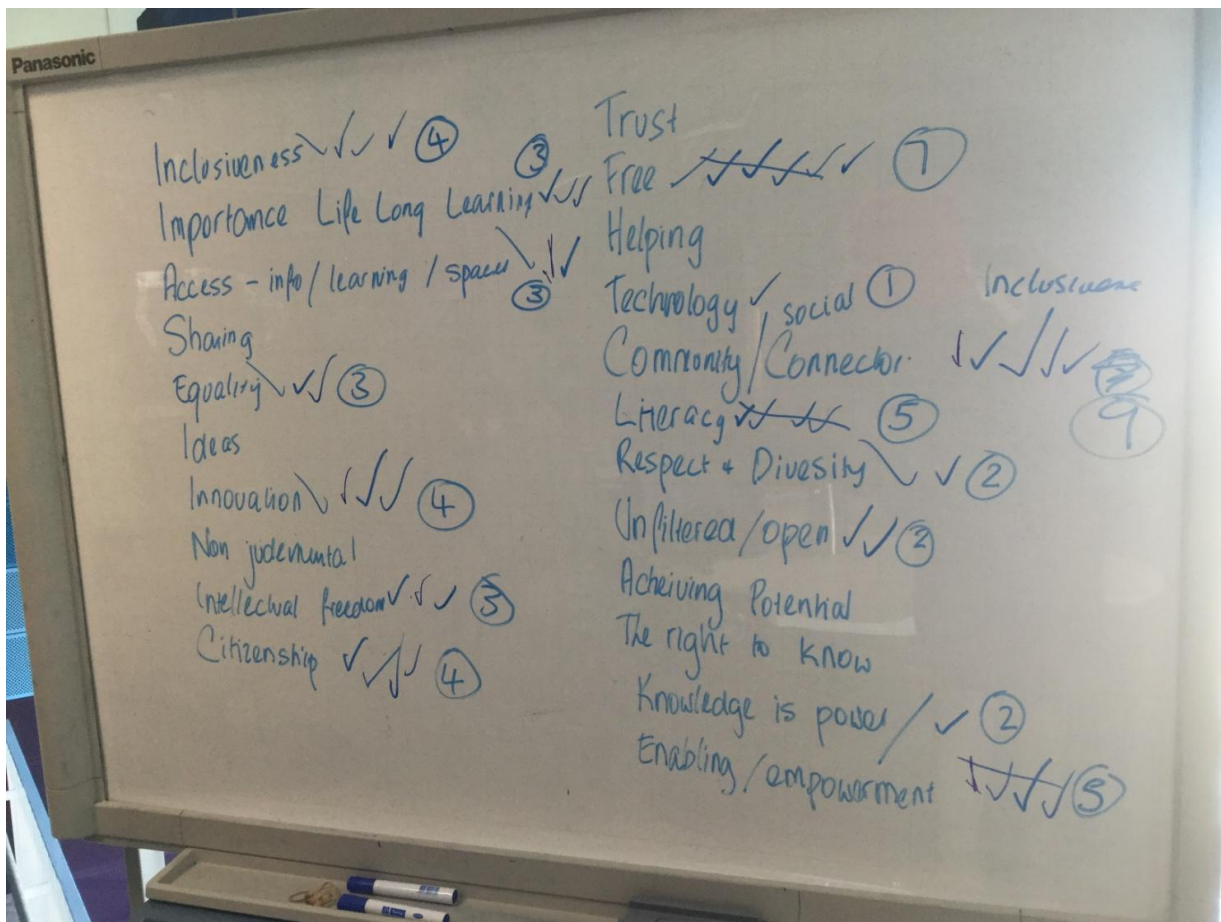 Panasonic
Inclusiveness ✓✓✓✓ 4
Importance Life Long Learning ✓✓✓ 3
Access - info / learning / spaces ✓✓✓ 3
Sharing
Equality ✓✓✓ 3
Ideas
Innovation ✓✓✓✓ 4
Non judemental
Intellectual freedom ✓✓✓ 3
Citizenship ✓✓✓✓ 4
Trust
Free ✓✓✓✓✓✓ 7
Helping
Technology ✓ 1
social Inclusiveness
Community / Connector ✓✓✓✓✓ 9
Literacy ✓✓✓✓ 5
Respect + Divesity ✓✓ 2
Unfiltered / open ✓✓ 2
Acheiving Potential
The right to know
Knowledge is power / ✓ 2
Enabling / empowerment ✓✓✓✓ 5